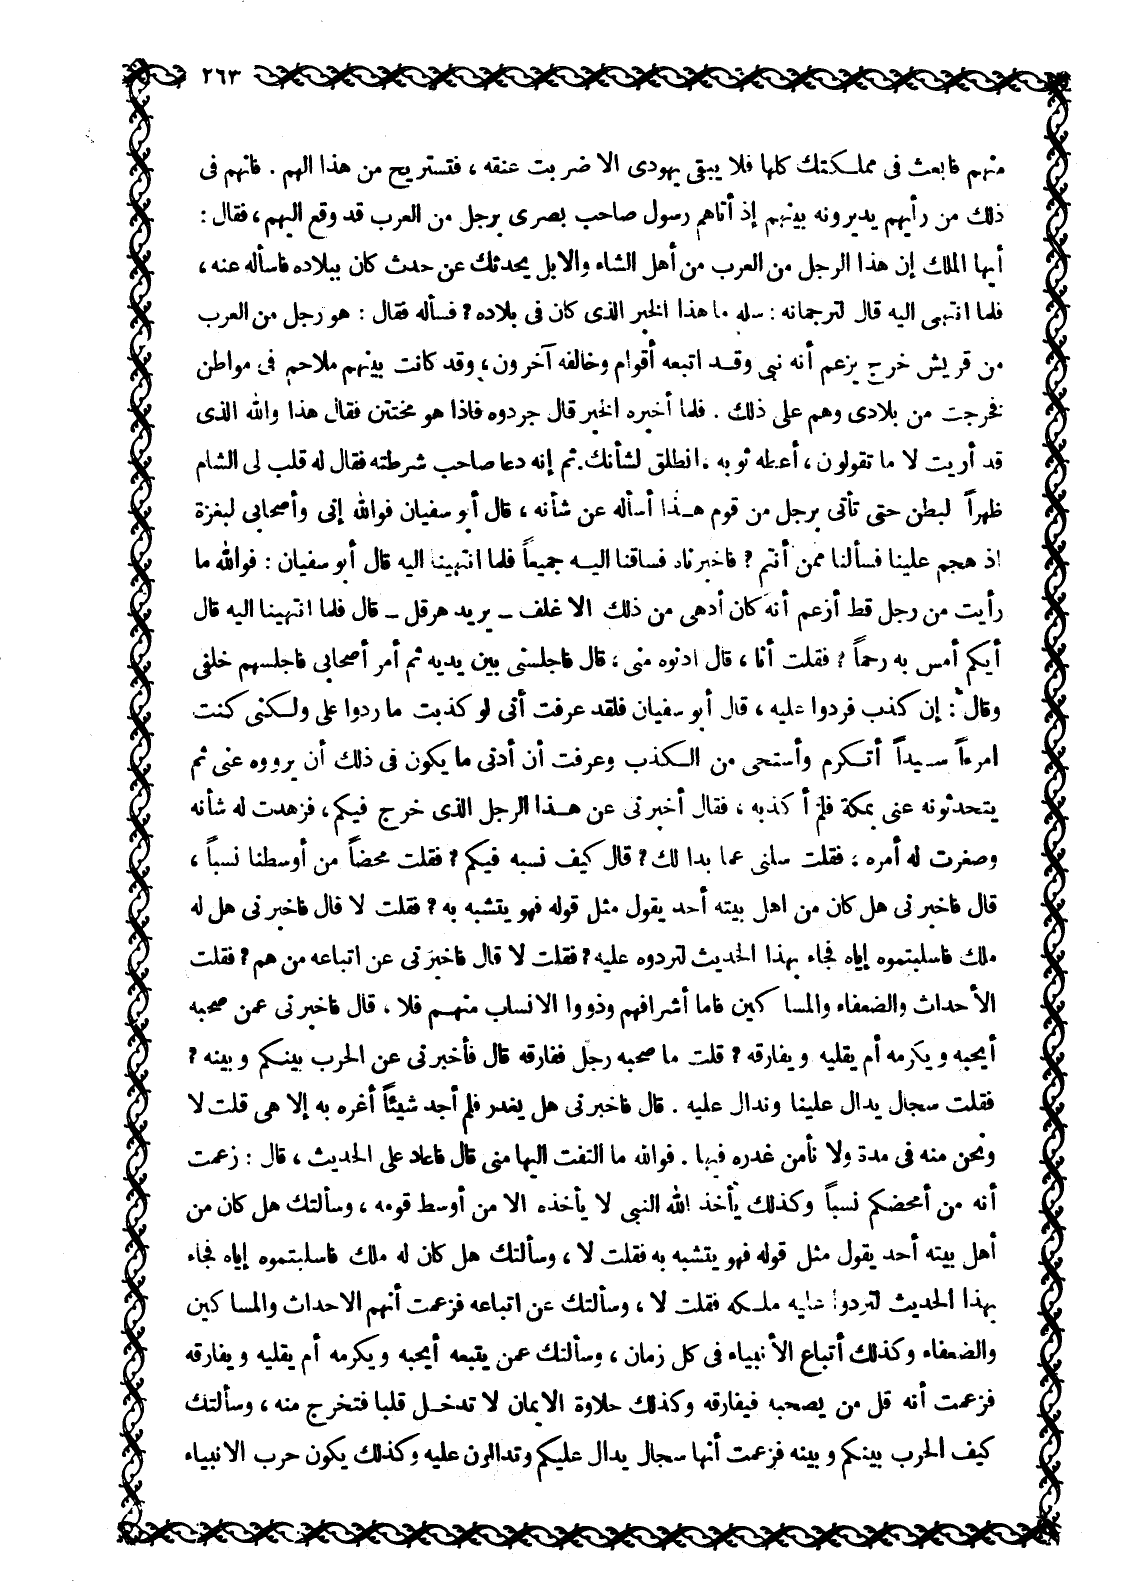 ٢٦٣
منهم فابعث فى مملـكتك كلها فلا يبقى يهودى الا ضربت عنقه ، فتستريح من هذا الهم . فانهم فى
ذلك من رأيهم يديرونه بينهم إذ أتاهم رسول صاحب بصرى برجل من العرب قد وقع اليهم ، فقال :
أيها الملك إن هذا الرجل من العرب من أهل الشاء والابل يحدثك عن حدث كان ببلاده فاسأله عنه ،
فلما انتهى اليه قال لترجمانه : سله ما هذا الخبر الذى كان فى بلاده ? فسأله فقال : هو رجل من العرب
من قريش خرج يزعم أنه نبى وقـد اتبعه أقوام وخالفه آخرون ، وقد كانت بينهم ملاحم فى مواطن
فخرجت من بلادى وهم على ذلك . فلما أخبره الخبر قال جردوه فاذا هو مختتن فقال هذا والله الذى
قد أريت لا ما تقولون ، أعطه ثوبه . انطلق لشأنك. ثم إنه دعا صاحب شرطته فقال له قلب لى الشام
ظهراً لبطن حتى تأتى برجل من قوم هـذا أسأله عن شأنه ، قال أبو سفيان فوالله إنى وأصحابى لبغزة
اذ هجم علينا فسألنا ممن أنتم ? فاخبرناه فساقنا اليـه جميعاً فلما انتهينا اليه قال أبو سفيان : فوالله ما
رأيت من رجل قط أزعم أنه كان أدهى من ذلك الاغلف ــ يريد هرقل ــ قال فلما انتهينا اليه قال
أيكم أمس به رحماً ? فقلت أنا ، قال ادنوه منى ، قال فاجلسنى بين يديه ثم أمر أصحابى فاجلسهم خلفى
وقال : إن كذب فردوا عليه ، قال أبو سفيان فلقد عرفت أنى لو كذبت ما ردوا على ولـكنى كنت
امرءاً سـيداً أتـكرم وأستحى من الـكذب وعرفت أن أدنى ما يكون فى ذلك أن يرووه عنى ثم
يتحدثونه عنى بمكة فلم أكذبه ، فقال أخبرنى عن هـذا الرجل الذى خرج فيكم ، فزهدت له شأنه
وصغرت له أمره ، فقلت سلنى عما بدا لك ? قال كيف نسبه فيكم ? فقلت محضاً من أوسطنا نسباً ،
قال فاخبرنى هل كان من اهل بيته أحد يقول مثل قوله فهو يتشبه به ? فقلت لا قال فاخبرنى هل له
ملك فاسلبتموه إياه فجاء بهذا الحديث لتردوه عليه ? فقلت لا قال فاخبرنى عن اتباعه من هم ? فقلت
الأحداث والضعفاء والمساكين فاما أشرافهم وذووا الانساب منهـم فلا ، قال فاخبرنى عمن صحبه
أيحبه ويكرمه أم يقليه ويفارقه ? قلت ما صحبه رجل ففارقه قال فأخبرنى عن الحرب بينـكم وبينه ?
فقلت سجال يدال علينا وندال عليه . قال فاخبرنى هل يغدر فلم أجد شيئاً أغره به إلا هى قلت لا
ونحن منه فى مدة ولا نأمن غدره فيها . فوالله ما التفت اليها منى قال فاعاد على الحديث ، قال : زعمت
أنه من أمحضكم نسباً وكذلك يأخذ الله النبى لا يأخذه الا من أوسط قومه ، وسألتك هل كان من
أهل بيته أحد يقول مثل قوله فهو يتشبه به فقلت لا ، وسألتك هل كان له ملك فاسلبتموه إياه فجاء
بهذا الحديث لتردوا عليه ملـكه فقلت لا ، وسألتك عن اتباعه فزعمت أنهم الاحداث والمساكين
والضعفاء وكذلك أتباع الأنبياء فى كل زمان ، وسألتك عمن يتبعه أيحبه ويكرمه أم يقليه ويفارقه
فزعمت أنه قل من يصحبه فيفارقه وكذلك حلاوة الايمان لا تدخـل قلبا فتخرج منه ، وسألتك
كيف الحرب بينكم وبينه فزعمت أنها سجال يدال عليكم وتدالون عليه وكذلك يكون حرب الانبياء